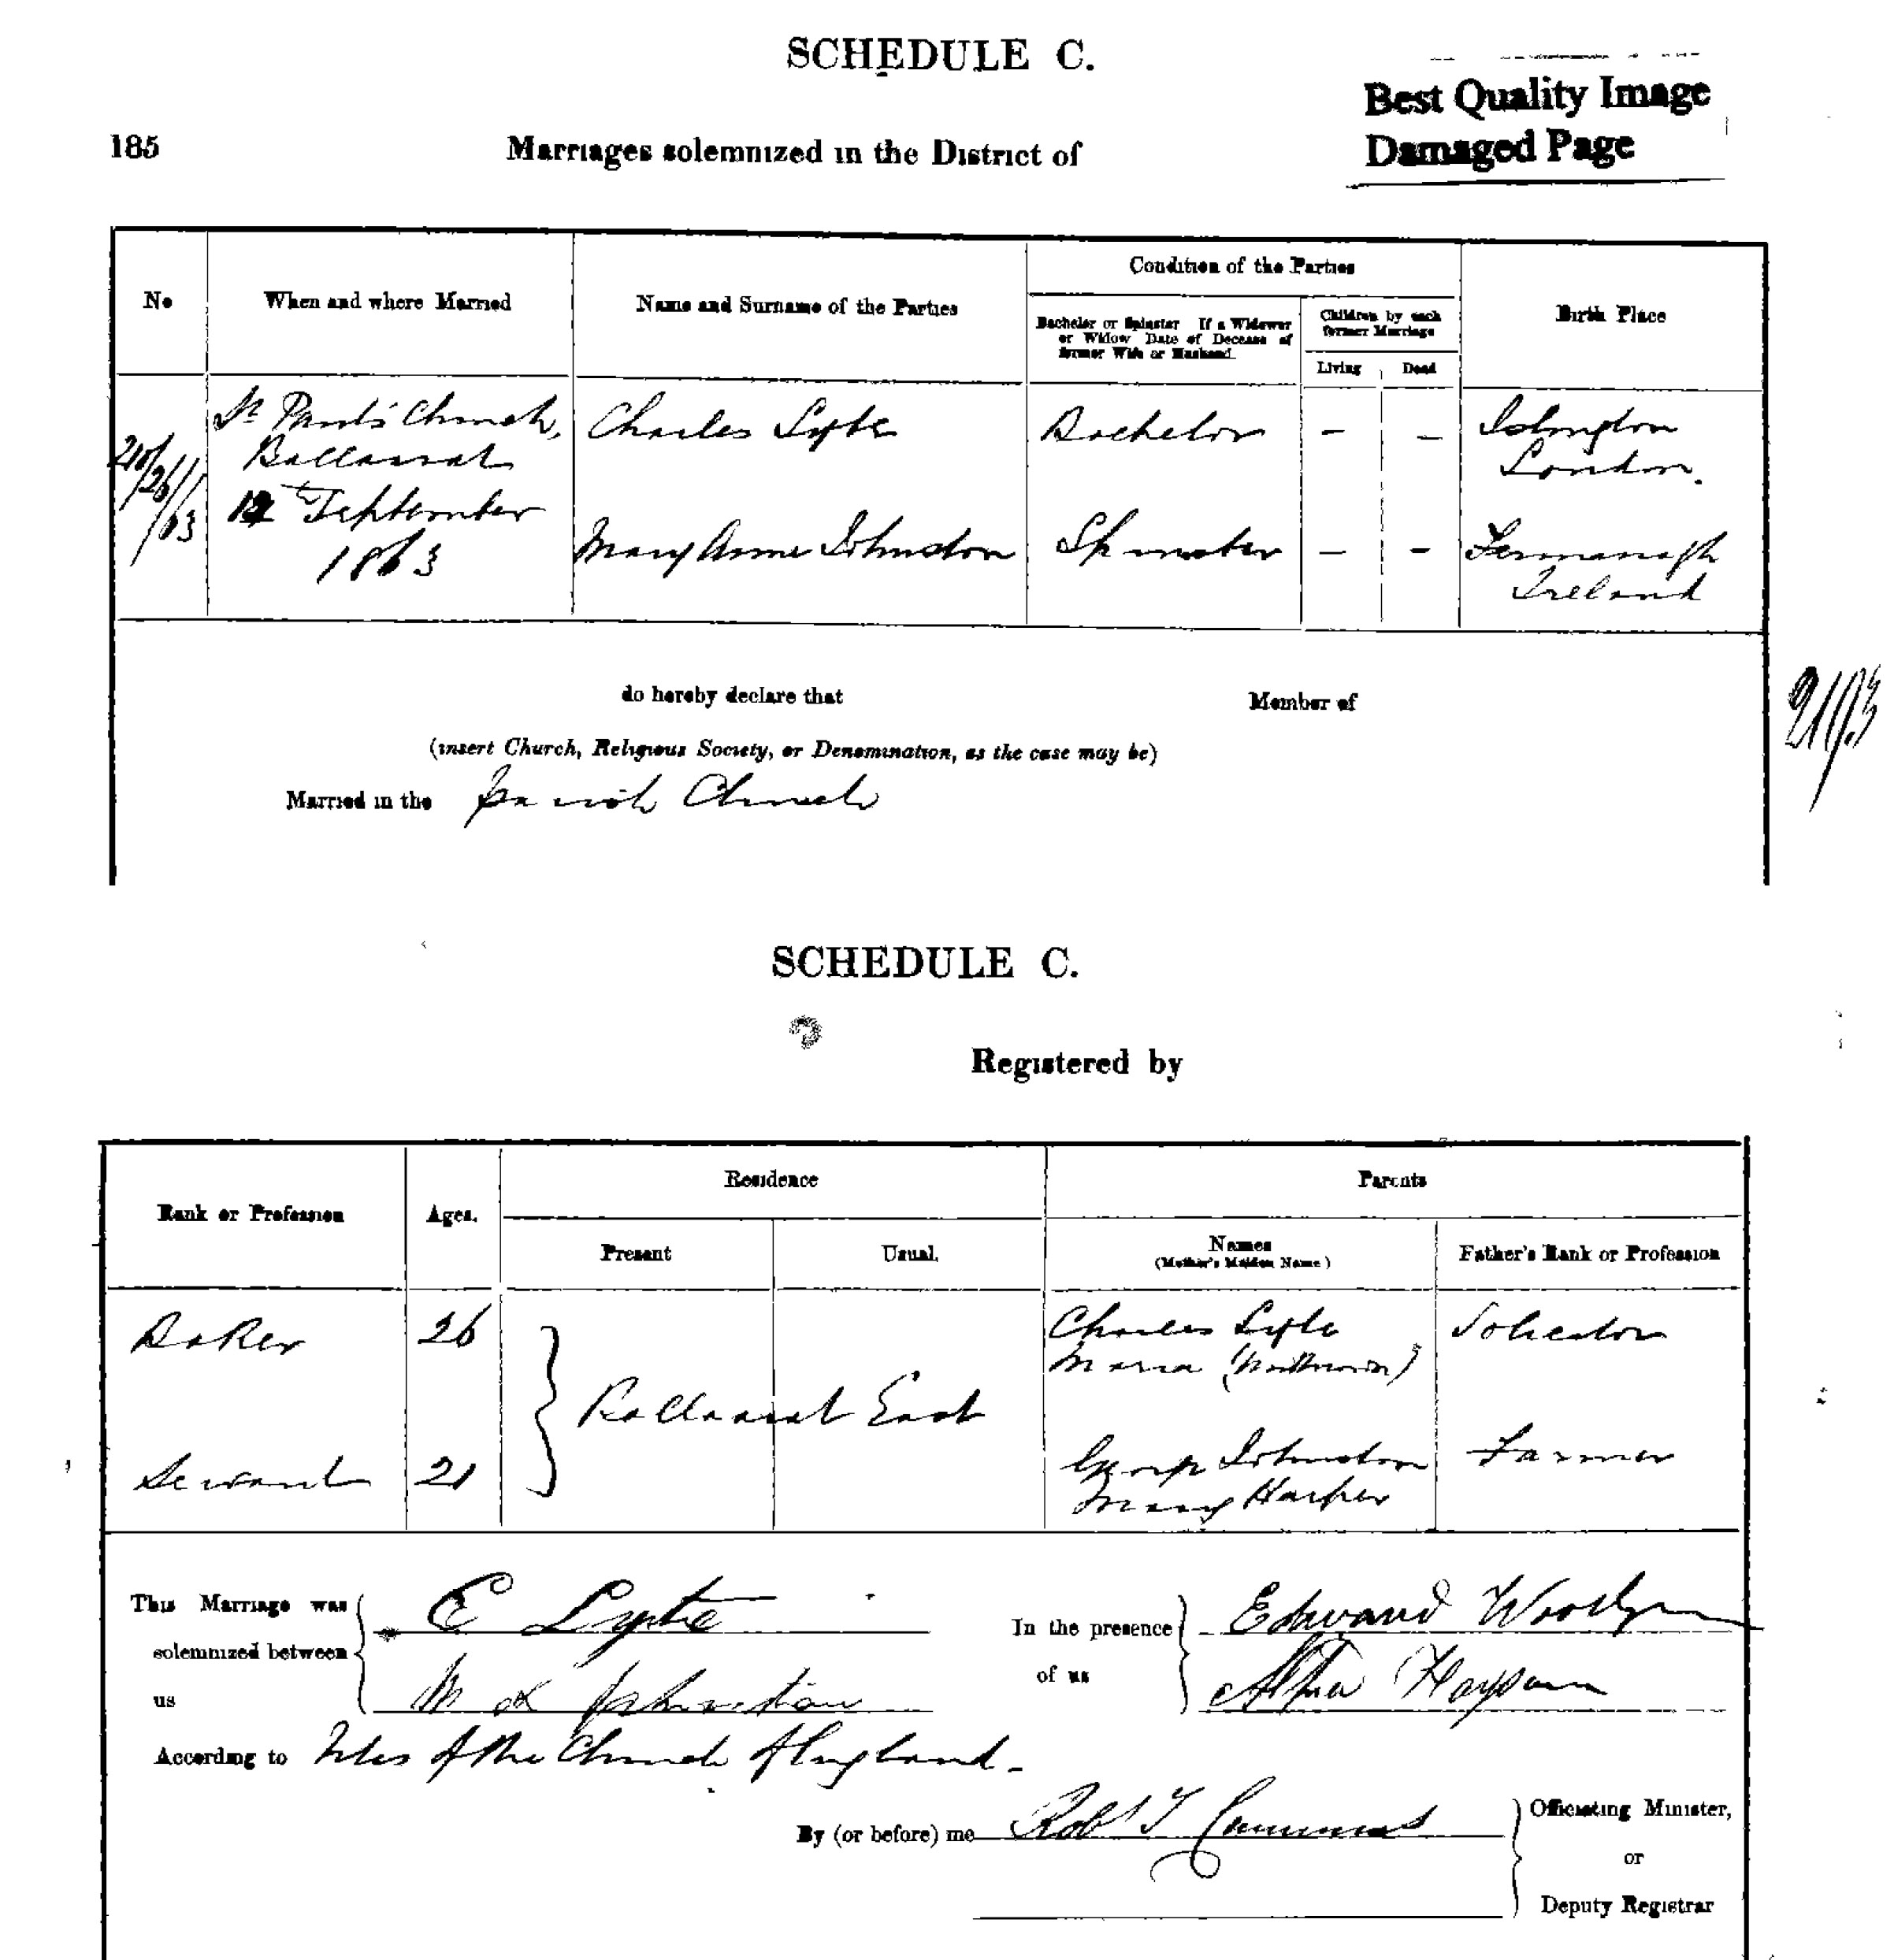 SCHEDULE C.
Best Quality Image
Damaged Page
185
Marriages solemnized in the District of
No
When and where Married
Name and Surname of the Parties
Condition of the Parties
Bachelor or Spinster If a Widower
or Widow Date of Decease of
former Wife or Husband
Children by each
former Marriage
Living
Dead
Birth Place
St Paul's Church, Charles Lyte Bachelor - - Islington
Ballaarat London.
September
1863
Mary Anne Johnston Spinster - - Fermanagh
Ireland
do hereby declare that
Member of
(insert Church, Religious Society, or Denomination, as the case may be)
Married in the Parish Church
SCHEDULE C.
Registered by
Rank or Profession
Ages.
Residence
Present
Usual.
Parents
Names
(Mother's Maiden Name)
Father's Rank or Profession
Baker 26 Charles Lyte Solicitor
Maria
Ballaarat East
Servant 21 George Johnston Farmer
Mary Harper
This Marriage was
solemnized between
us
C Lyte
M A Johnston
In the presence
of us
Edward
According to Rites of the Church of England.
By (or before) me Robt T Cummins
Officiating Minister,
or
Deputy Registrar